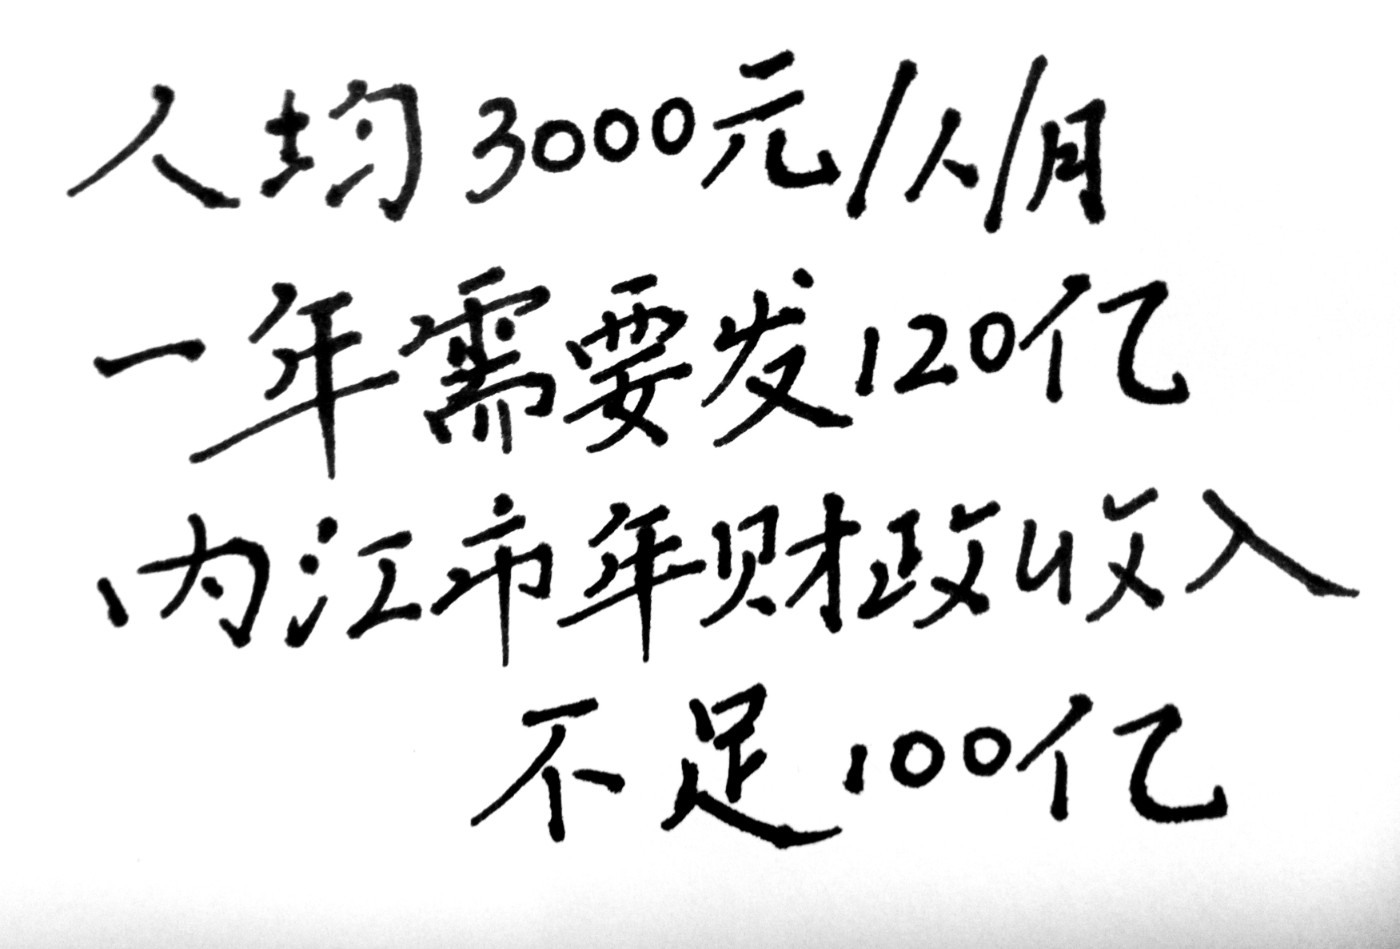 人均3000元/人/月
一年需要发120亿
内江市年财政收入
不足100亿